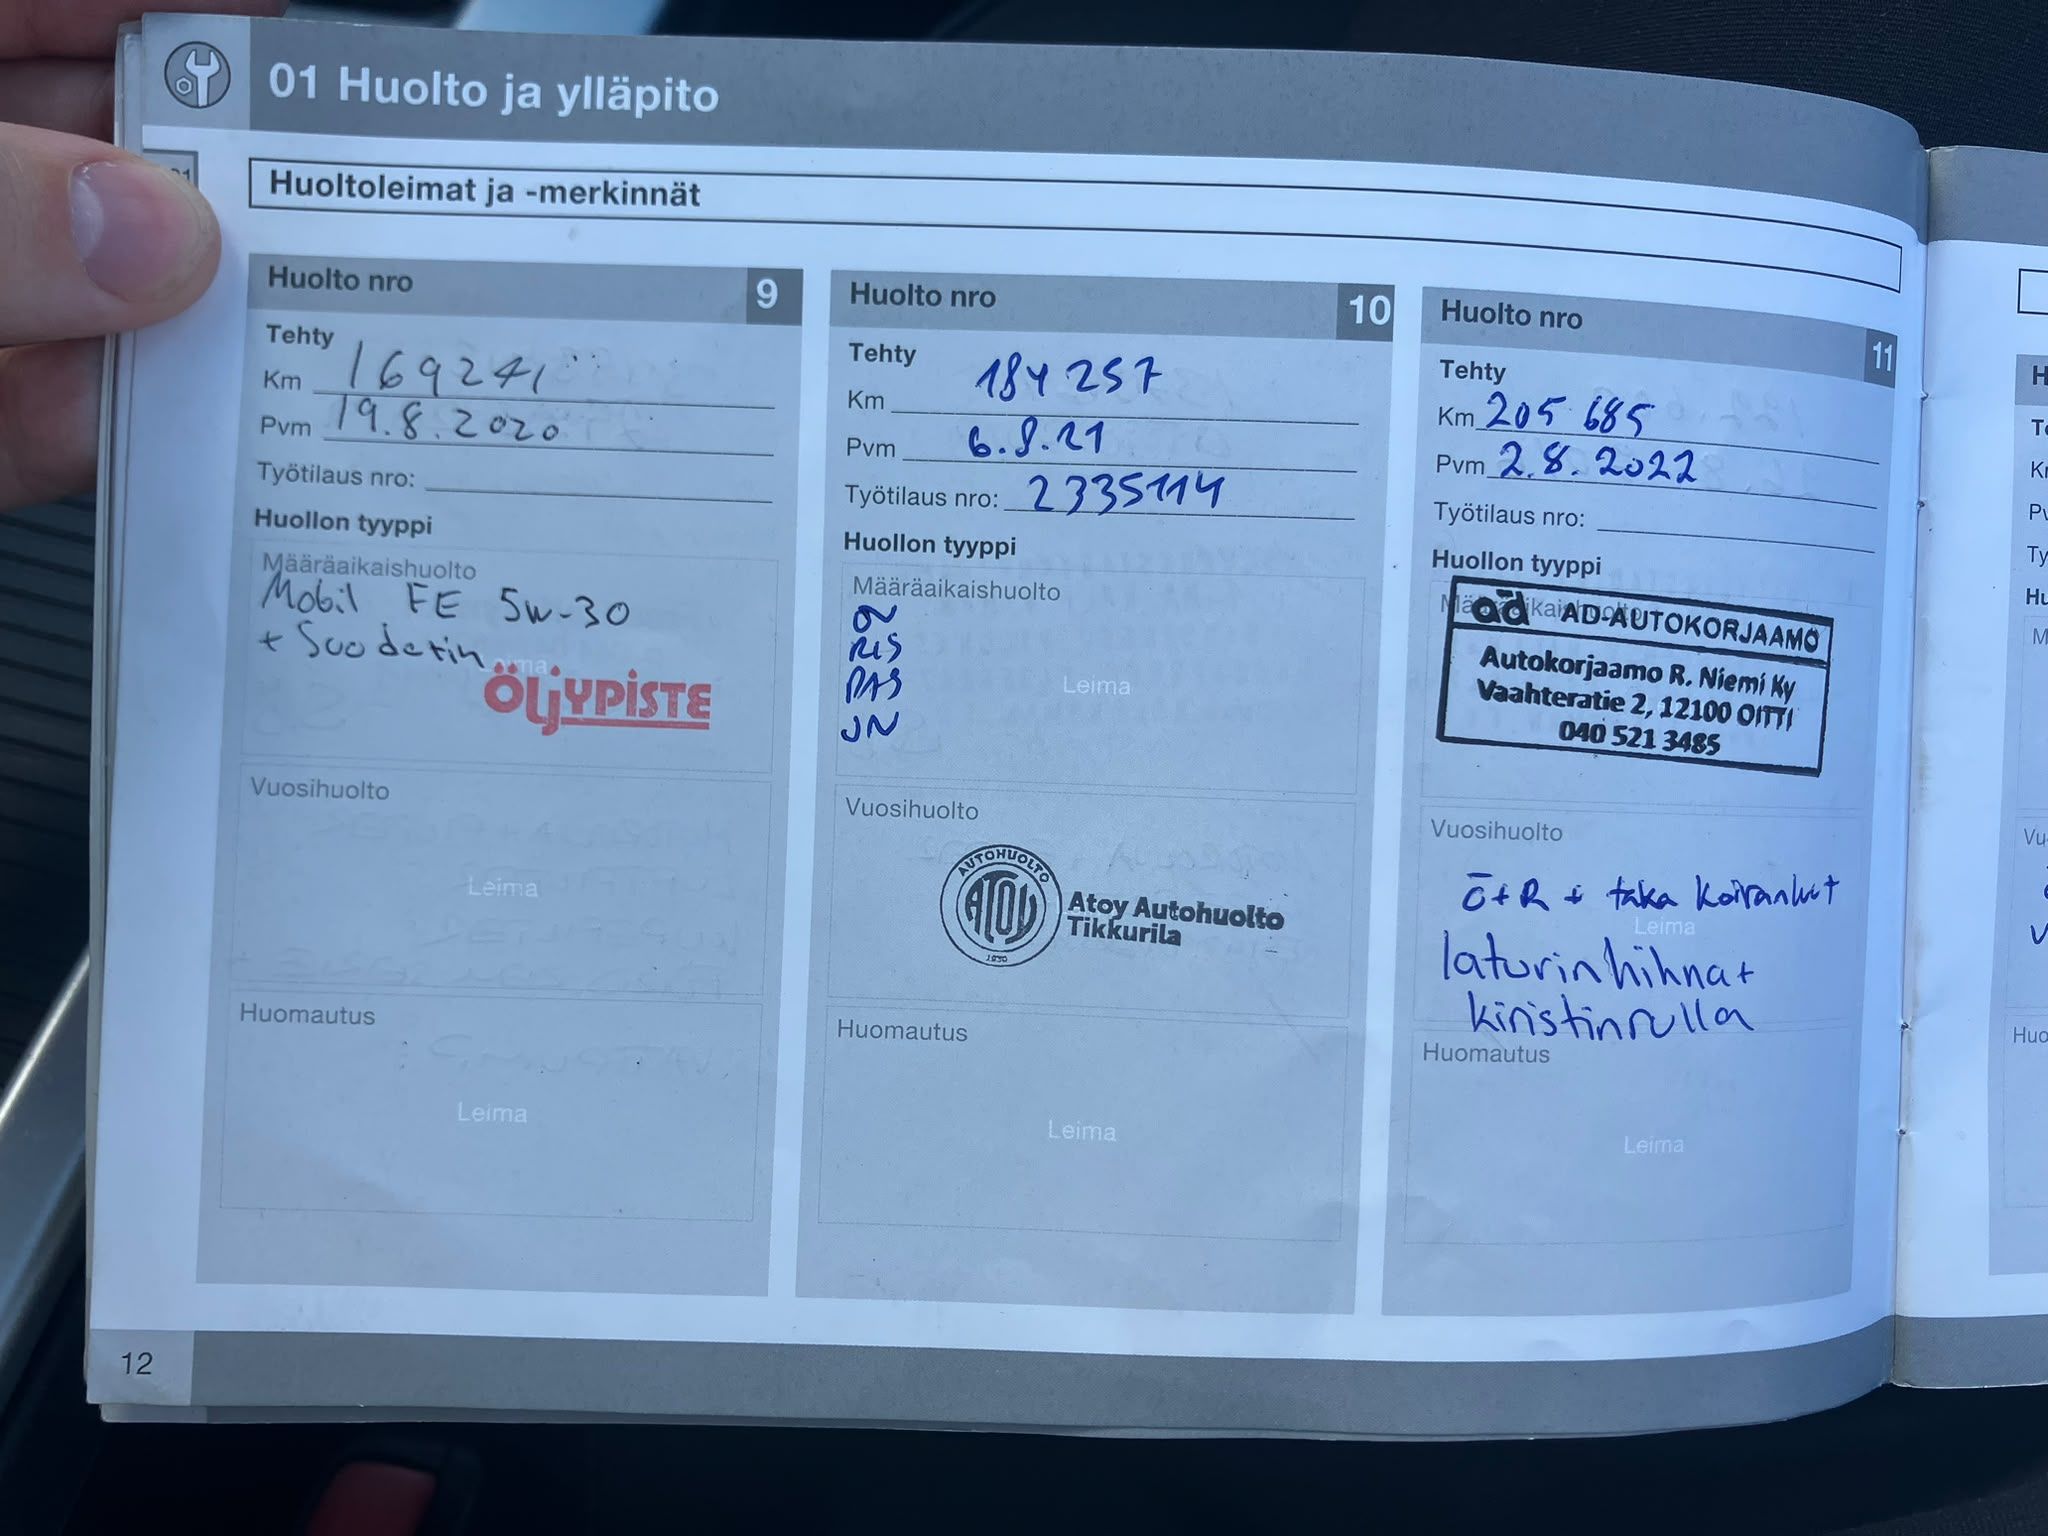 01 Huolto ja ylläpito
Huoltoleimat ja -merkinnät
Huolto nro 9
Tehty
Km 169241
Pvm 19.8.2020
Työtilaus nro:
Huollon tyyppi
Määräaikaishuolto
Mobil FE 5w-30
+ Suodatin
ÖLjYPiSTE
Vuosihuolto
Leima
Huomautus
Leima
Huolto nro 10
Tehty
Km 184 257
Pvm 6.8.21
Työtilaus nro: 2335114
Huollon tyyppi
Määräaikaishuolto
ÖV
RIS
PAS
JN
Leima
Vuosihuolto
AUTOHUOLTO
ATOY
1930
Atoy Autohuolto
Tikkurila
Huomautus
Leima
Huolto nro 11
Tehty
Km 205 685
Pvm 2.8.2022
Työtilaus nro:
Huollon tyyppi
Määräaikaishuolto
ad AD-AUTOKORJAAMO
Autokorjaamo R. Niemi Ky
Vaahteratie 2, 12100 OITTI
040 521 3485
Vuosihuolto
ö+R + taka koiranluut
Leima
laturin hihna+
kiristinrulla
Huomautus
Leima
12